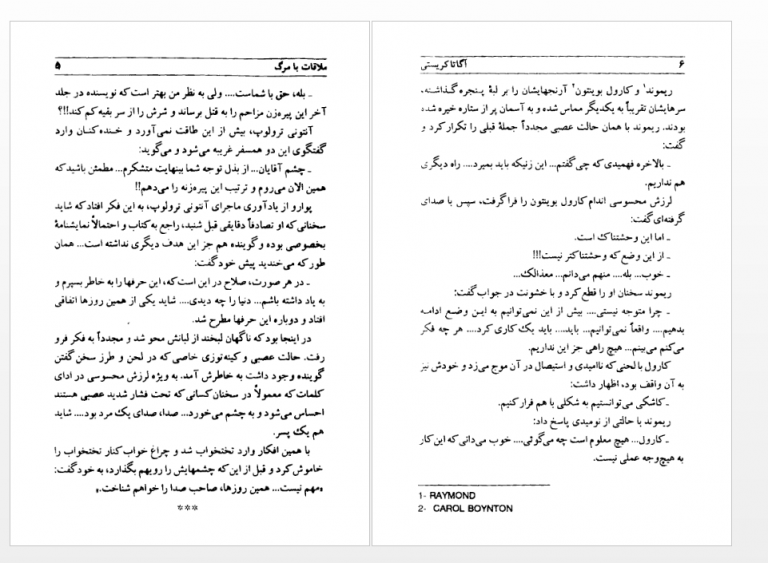 ملاقات با مرگ ۵
ـ بله، حق با شماست.... ولی به نظر من بهتر است که نویسنده در جلد
آخر این پیره‌زن مزاحم را به قتل برساند و شرش را از سر بقیه کم کند!!؟
آنتونی ترولوپ، بیش از این طاقت نمی‌آورد و خنده‌کنان وارد
گفتگوی این دو همسفر غریبه می‌شود و می‌گوید:
ـ چشم آقایان... از بذل توجه شما بینهایت متشکرم... مطمئن باشید که
همین الان می‌روم و ترتیب این پیره‌زنه را می‌دهم!!
پوارو از یادآوری ماجرای آنتونی ترولوپ، به این فکر افتاد که شاید
سخنانی که او تصادفاً دقایقی قبل شنید، راجع به کتاب و احتمالاً نمایشنامۀ
بخصوصی بوده و گوینده هم جز این هدف دیگری نداشته است... همان
طور که می‌خندید پیش خود گفت:
ـ در هر صورت، صلاح در این است که، این حرفها را به خاطر بسپرم و
به یاد داشته باشم... دنیا را چه دیدی.... شاید یکی از همین روزها اتفاقی
افتاد و دوباره این حرفها مطرح شد.
در اینجا بود که ناگهان لبخند از لبانش محو شد و مجدداً به فکر فرو
رفت. حالت عصبی و کینه‌توزی خاصی که در لحن و طرز سخن گفتن
گوینده وجود داشت به خاطرش آمد. به ویژه لرزش محسوسی در ادای
کلمات که معمولاً در سخنان کسانی که تحت فشار شدید عصبی هستند
احساس می‌شود و به چشم می‌خورد... صدا، صدای یک مرد بود.... شاید
هم یک پسر.
با همین افکار وارد تختخواب شد و چراغ خواب کنار تختخواب را
خاموش کرد و قبل از این که چشمهایش را رویهم بگذارد، به خود گفت:
«مهم نیست... همین روزها، صاحب صدا را خواهم شناخت.»
***
۶ آگاتا کریستی
ریموند¹ و کارول بوینتون² آرنجهایشان را بر لبۀ پنجره گذاشته،
سرهایشان تقریباً به یکدیگر مماس شده و به آسمان پر از ستاره خیره شده
بودند. ریموند با همان حالت عصبی مجدداً جملۀ قبلی را تکرار کرد و
گفت:
ـ بالاخره فهمیدی که چی گفتم... این زنیکه باید بمیرد.... راه دیگری
هم نداریم.
لرزش محسوسی اندام کارول بوینتون را فرا گرفت، سپس با صدای
گرفته‌ای گفت:
ـ اما این وحشتناک است.
ـ از این وضع که وحشتناکتر نیست!!!
ـ خوب... بله.... منهم می‌دانم... معذالک...
ریموند سخنان او را قطع کرد و با خشونت در جواب گفت:
ـ چرا متوجه نیستی.... بیش از این نمی‌توانیم به این وضع ادامه
بدهیم.... واقعاً نمی‌توانیم... باید.... باید یک کاری کرد.... هر چه فکر
می‌کنم می‌بینم... هیچ راهی جز این نداریم.
کارول با لحنی که ناامیدی و استیصال در آن موج می‌زد و خودش نیز
به آن واقف بود، اظهار داشت:
ـ کاشکی می‌توانستیم به شکلی با هم فرار کنیم.
ریموند با حالتی از نومیدی پاسخ داد:
ـ کارول... هیچ معلوم است چه می‌گوئی.... خوب می‌دانی که این کار
به هیچ‌وجه عملی نیست.
1- RAYMOND
2- CAROL BOYNTON